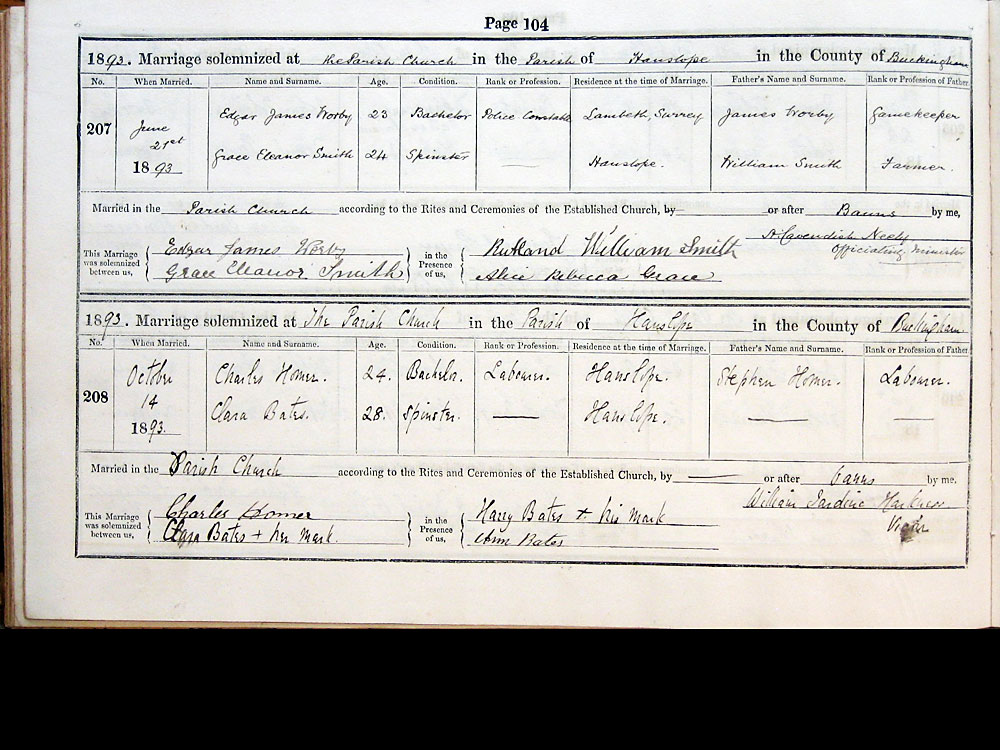 Page 104
1893. Marriage solemnized at the Parish Church in the Parish of Hanslope in the County of Buckingham
No. When Married. Name and Surname. Age. Condition. Rank or Profession. Residence at the time of Marriage. Father's Name and Surname. Rank or Profession of Father.
207 June 21st 1893 Edgar James Worby 23 Bachelor Police Constable Lambeth, Surrey James Worby Gamekeeper
Grace Eleanor Smith 24 Spinster — Hanslope. William Smith Farmer.
Married in the Parish Church according to the Rites and Ceremonies of the Established Church, by — or after Banns by me,
Cavendish Neely
Officiating Minister
This Marriage was solemnized between us, Edgar James Worby in the Presence of us, Rutland William Smith
Grace Eleanor Smith Alice Rebecca Grace
1893. Marriage solemnized at The Parish Church in the Parish of Hanslope in the County of Buckingham
No. When Married. Name and Surname. Age. Condition. Rank or Profession. Residence at the time of Marriage. Father's Name and Surname. Rank or Profession of Father
208 October 14 1893. Charles Homer. 24. Bachelor. Labourer. Hanslope. Stephen Homer. Labourer.
Clara Bates. 28. Spinster. — Hanslope. — —
Married in the Parish Church according to the Rites and Ceremonies of the Established Church, by — or after banns by me.
William Jardine Harkness
Vicar
This Marriage was solemnized between us, Charles Homer in the Presence of us, Harry Bates + his mark
Clara Bates + her mark. Ann Bates